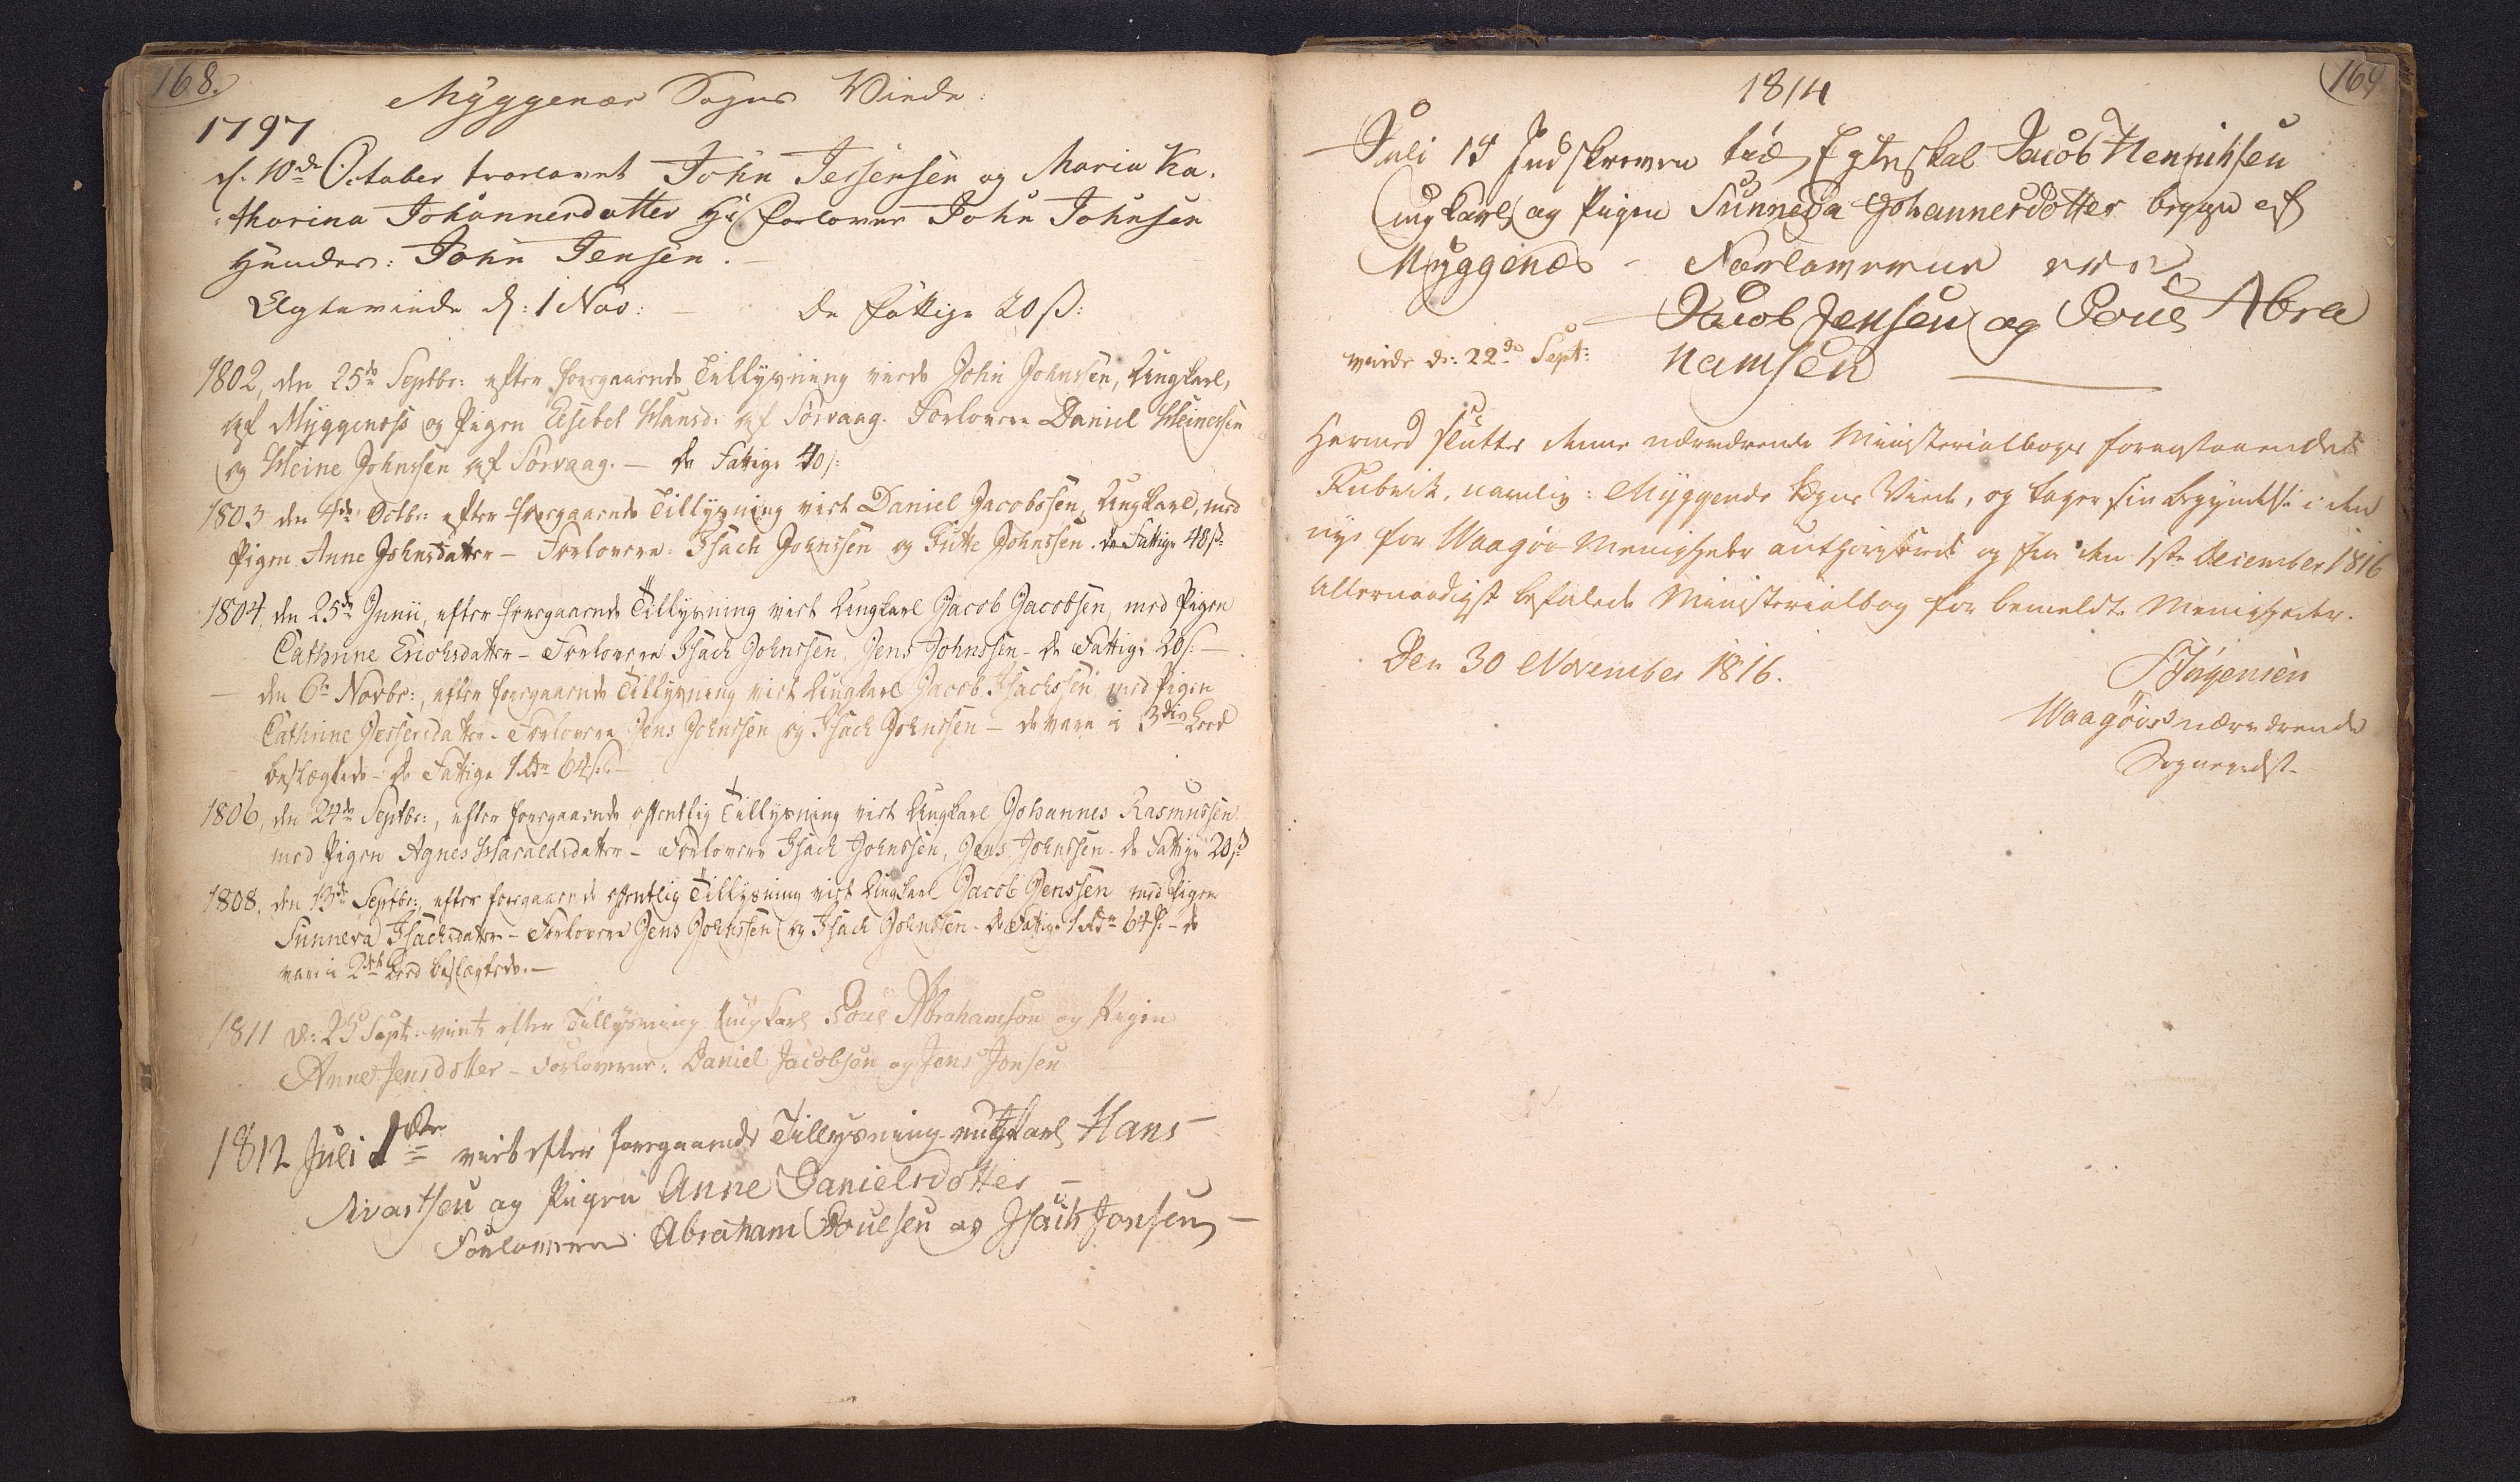 168.
Myggenæs Sogns Viede
1797
d: 10de October trolovet John Jessensen og Maria Ka-
tharina Johannesdatter Hs forlover John Johnsen
Hendes: John Jensen.
Ægteviede d: 1 Nov: — De fattige 20 ß:
1802, den 25de Septbr: efter foregaaende Tillysning viede John Johnssen, Ungkarl,
af Myggenæss og Pigen Elsebet Hansd: af Sørvaag. Forlovere Daniel Heinesen
og Heine Johnssen af Sørvaag. — de Fattige 40 ß:
1803 den 4de Octbr: efter foregaaende Tillysning viet Daniel Jacobssen, Ungkarl, med
Pigen Anne Johnsdatter — Forlovere: Isach Johnssen og Gutte Johnssen. de Fattige 48 ß
1804, den 25de Junii, efter foregaaende Tillysning viet Ungkarl Jacob Jacobsen, med Pigen
Cathrine Erichsdatter — Forlovere Isach Johnssen, Jens Johnssen — de Fattige 20 ß: —
— den 6te Novbr:, efter foregaaende Tillysning viet Ungkarl Jacob Isachssen med Pigen
Cathrine Jessesdatter — Forlovere Jens Johnssen og Isach Johnssen — de vare i 3die Leed
beslægtede — de Fattige 1 Rdr 64 ß: —
1806, den 24de Septbr:, efter foregaaende offentlig Tillysning viet Ungkarl Johannes Rasmussen
med Pigen Agnes Haraldsdatter — Forlovere Isach Johnssen, Jens Johnssen — de Fattige 20 ß
1808, den 13de Septbr:, efter foregaaende offentlig Tillysning viet Ungkarl Jacob Jenssen med Pigen
Sunneva Isachsdatter — Forlovere Jens Johnssen og Isach Johnssen — de Fattige 1 Rdr 64 ß — de
vare i 2det Leed beslægtede. —
1811 d: 25 Sept: viet efter Tillysning Ungkarl Poul Abrahamsøn og Pigen
Anne Jensdotter — Forloverne: Daniel Jacobsen og Jens Jonsen
1812 Juli 1ste viet efter foregaaende Tillysning ungkarl Hans
Sivartsen og Pigen Anne Danielsdotter —
Forlovere Abraham Poulsen og Isach Jonsen —
169
1814
Juli 15 Indskreven til Egteskab Jacob Henriksen
Ungkarl og Pigen Sunneva Johannesdotter begge af
Myggenæs — Forloverne ere
Jacob Jensen og Poul Abra
hamsen
viede d: 22de Sept:
Hermed slutter denne nærværende Ministerialbogs foranstaaende
Rubrik, namlig: Myggenæs Sogns Viede, og tager sin begyndelse i den
nye for Waagøe Menigheder authoriserede og fra den 1ste December 1816
allernaadigst befalede Ministerialbog for bemeldte Menigheder.
Den 30 November 1816.
Jørgensen
Waagøes nærværende
Sognepræst